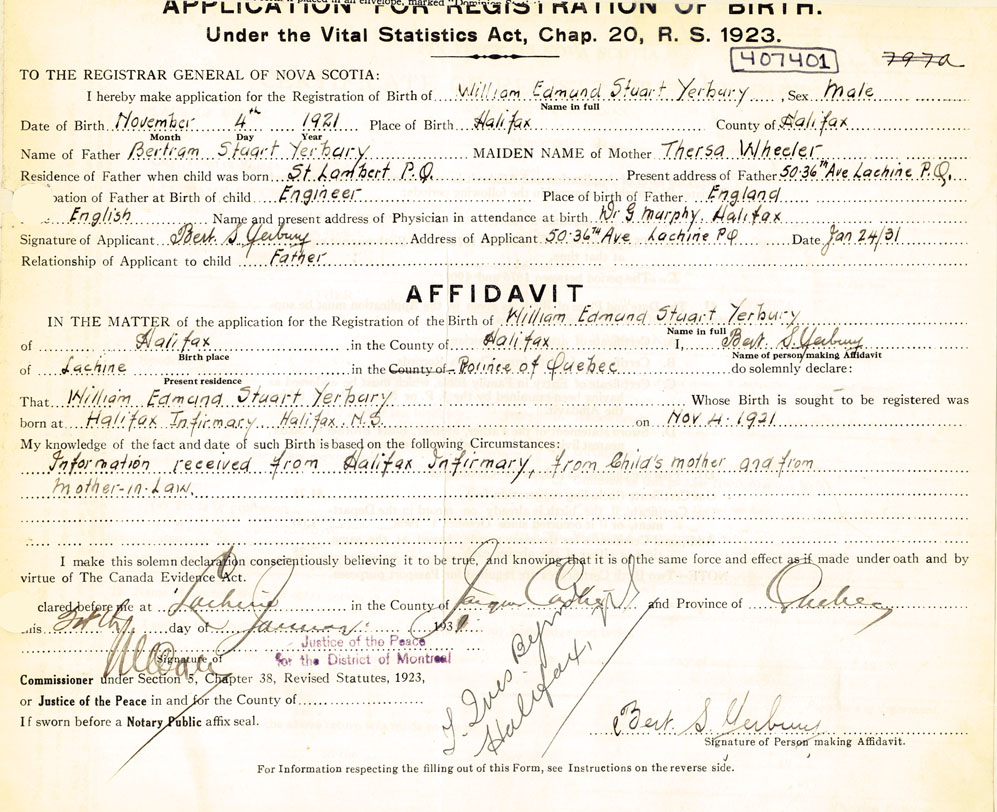 APPLICATION FOR REGISTRATION OF BIRTH.
Under the Vital Statistics Act, Chap. 20, R. S. 1923.
407401 797a
TO THE REGISTRAR GENERAL OF NOVA SCOTIA:
I hereby make application for the Registration of Birth of William Edmund Stuart Yerbury, Sex Male
Name in full
Date of Birth November 4th 1921 Place of Birth Halifax County of Halifax
Month Day Year
Name of Father Bertram Stuart Yerbury MAIDEN NAME of Mother Thersa Wheeler
Residence of Father when child was born St Lambert P.Q. Present address of Father 50·36th Ave Lachine P.Q.
pation of Father at Birth of child Engineer Place of birth of Father England
English Name and present address of Physician in attendance at birth Dr G Murphy. Halifax
Signature of Applicant Bert. S. Yerbury Address of Applicant 50·36th Ave Lachine PQ Date Jan 24/31
Relationship of Applicant to child Father
AFFIDAVIT
IN THE MATTER of the application for the Registration of the Birth of William Edmund Stuart Yerbury
Name in full
of Halifax in the County of Halifax I, Bert. S. Yerbury
Birth place Name of person making Affidavit
of Lachine in the County of Porince of Quebec do solemnly declare:
Present residence
That William Edmund Stuart Yerbury Whose Birth is sought to be registered was
born at Halifax Infirmary Halifax. N.S. on Nov 4·1921
My knowledge of the fact and date of such Birth is based on the following Circumstances:
Information received from Halifax Infirmary, from Child's mother and from
Mother-in-Law.
I make this solemn declaration conscientiously believing it to be true, and knowing that it is of the same force and effect as if made under oath and by
virtue of The Canada Evidence Act.
clared before me at Lachine in the County of Jacques Cartier and Province of Quebec
his day of January 1931
Justice of the Peace
for the District of Montreal
Signature of
Commissioner under Section 5, Chapter 38, Revised Statutes, 1923,
or Justice of the Peace in and for the County of
If sworn before a Notary Public affix seal.
Halifax,
Bert. S. Yerbury
Signature of Person making Affidavit.
For Information respecting the filling out of this Form, see Instructions on the reverse side.